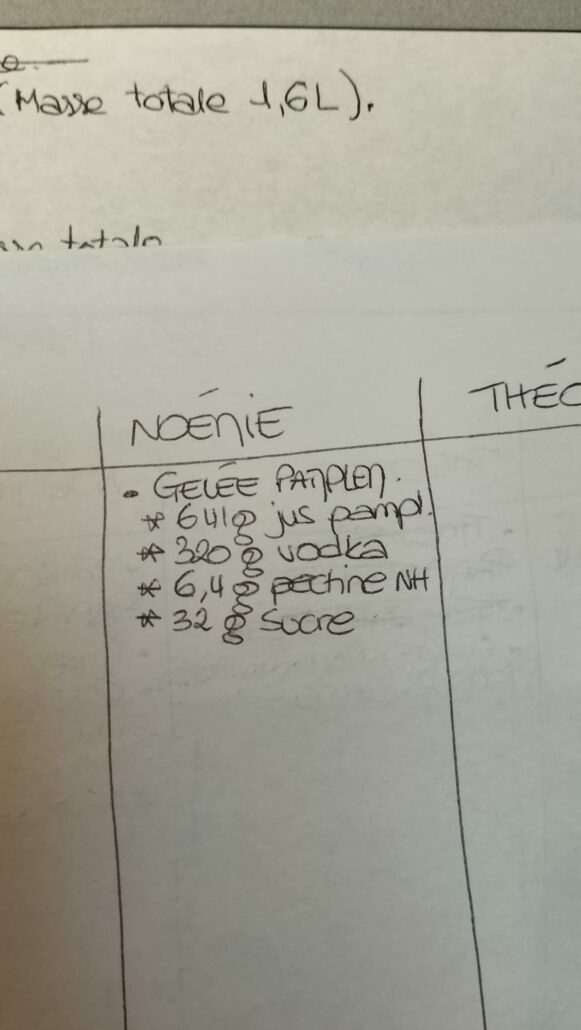 e.
(Masse totale 1,6L).
totale
NOÉNIE
THÉO
• GELÉE PAMPLEM.
* 641g jus pampl.
* 320 g vodka
* 6,4 g pectine NH
* 32 g sucre